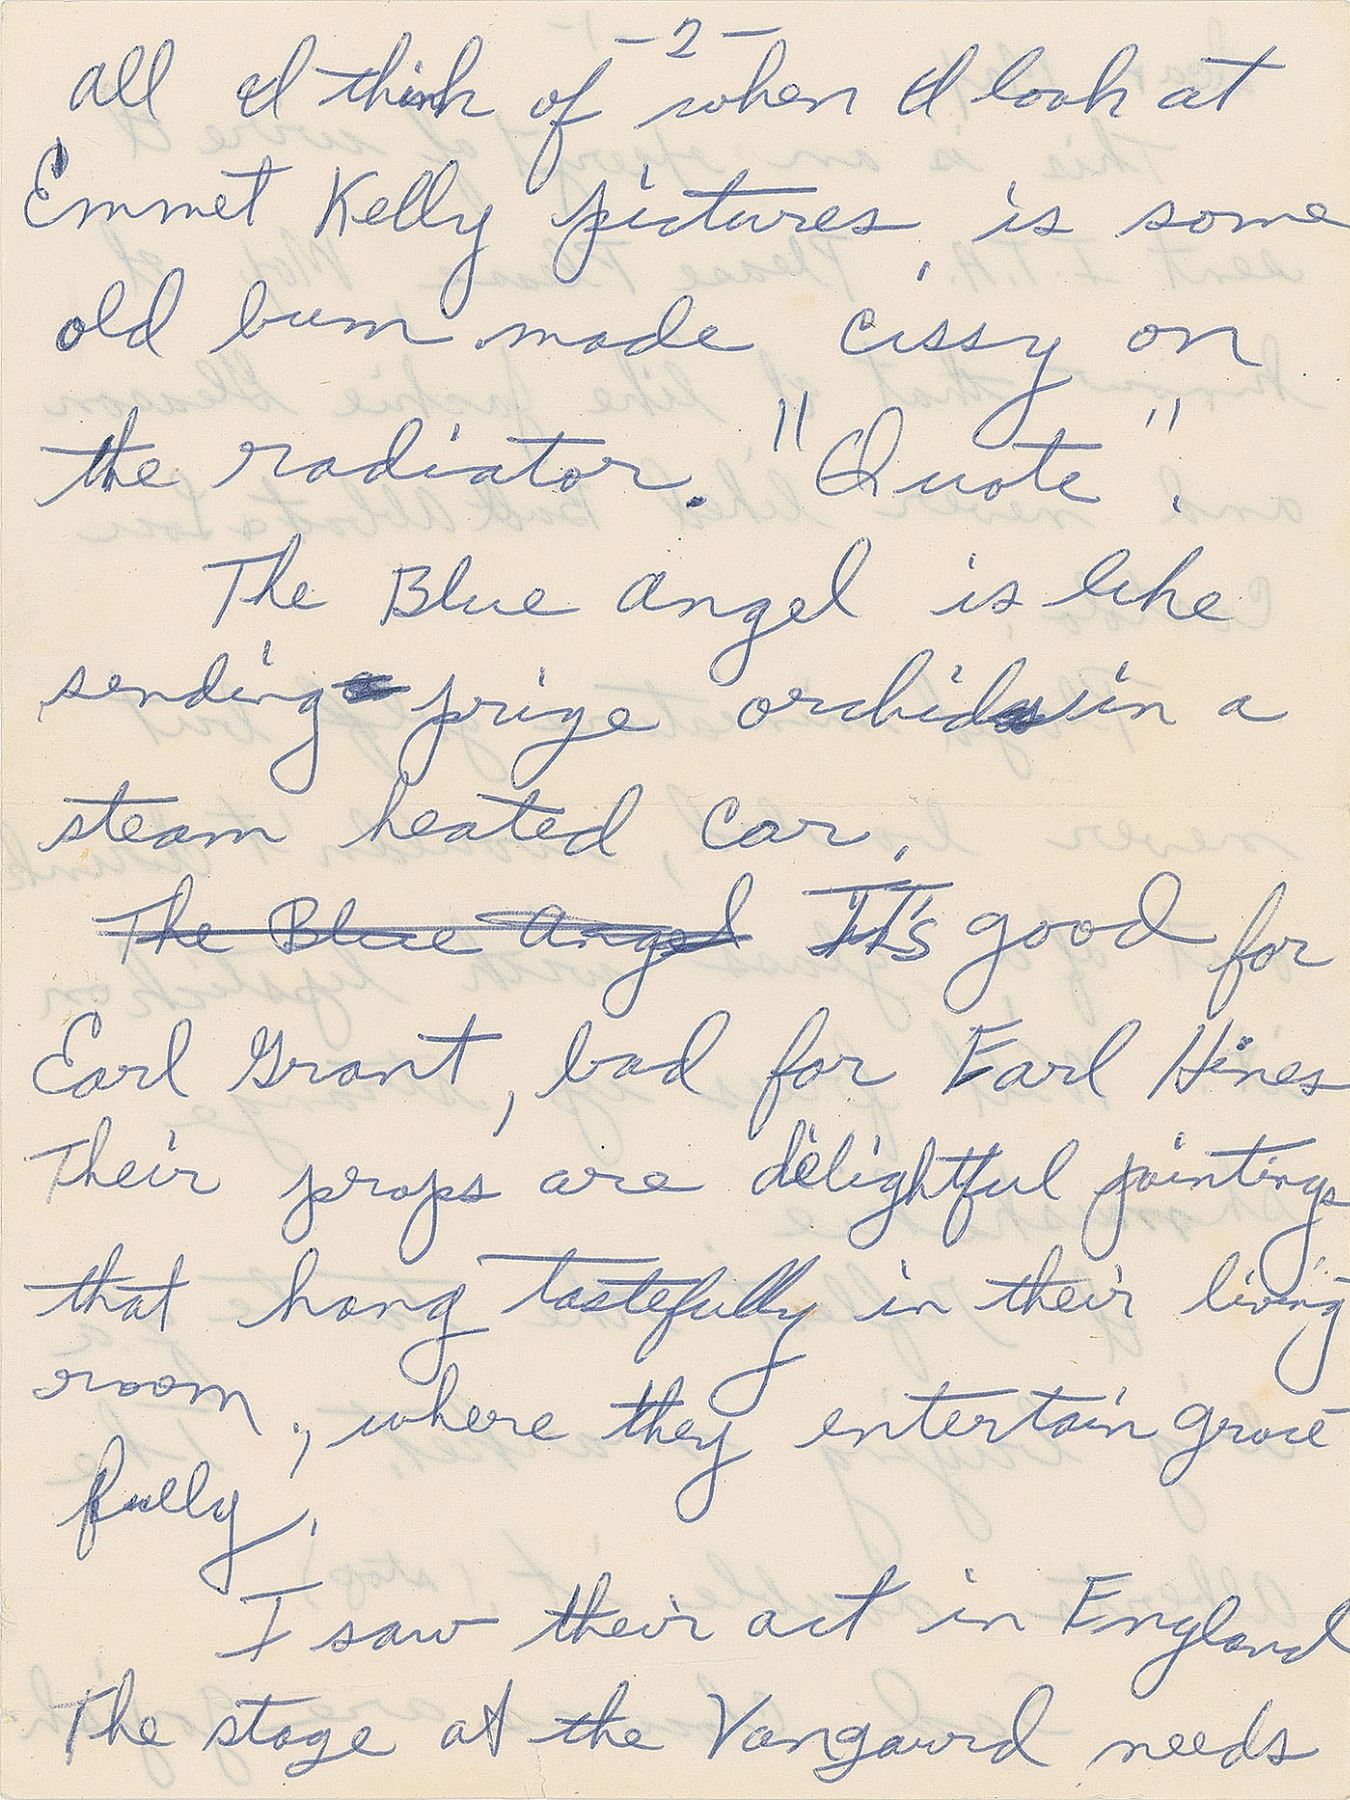 -2-
all I think of when I look at
Emmet Kelly pictures, is some
old bum made cissy on
the radiator. "Quote".
The Blue Angel is like
sending prize orchids in a
steam heated car.
The Blue Angel It's good for
Earl Grant, bad for Earl Hines
Their props are delightful paintings
that hang tastefully in their living
room, where they entertain grace
fully.
I saw their act in England
The stage at the Vangaurd needs